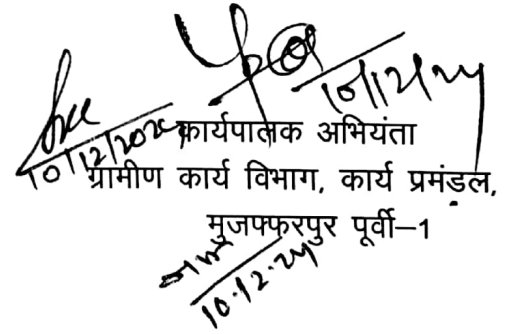 10/12/24
10/12/2024
कार्यपालक अभियंता
ग्रामीण कार्य विभाग, कार्य प्रमंडल,
मुजफ्फरपुर पूर्वी–1
10.12.24